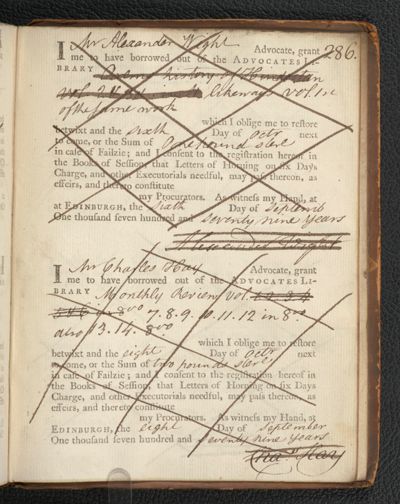 286.
I Mr Alexander Wight Advocate, grant
me to have borrowed out of the ADVOCATES LI-
BRARY history of
likeways Vol. 1st
of the same work
which I oblige me to restore
betwixt and the sixth Day of Octr next
to come, or the Sum of One pound sterl
in case of Failzie; and I consent to the registration hereof in
the Books of Session, that Letters of Horning on six Days
Charge, and other Executorials needful, may pass thereon, as
effeirs, and thereto constitute
my Procurators. As witness my Hand, at
at EDINBURGH, the Sixth Day of Septemb
One thousand seven hundred and seventy nine Years
Alexander Wight
I Mr Charles Hay Advocate, grant
me to have borrowed out of the ADVOCATES LI-
BRARY Monthly Review Vol. 1. 2. 3. 4
5 & 6 in 8vo 7. 8. 9. 10. 11. 12 in 8vo
also 13. 14. 8vo
which I oblige me to restore
betwixt and the eight Day of Octr next
to come, or the Sum of two pounds sterl
in case of Failzie; and I consent to the registration hereof in
the Books of Session, that Letters of Horning on six Days
Charge, and other Executorials needful, may pass thereon, as
effeirs, and thereto constitute
my Procurators. As witness my Hand, at
EDINBURGH, the eight Day of September
One thousand seven hundred and seventy nine Years
Chas Hay